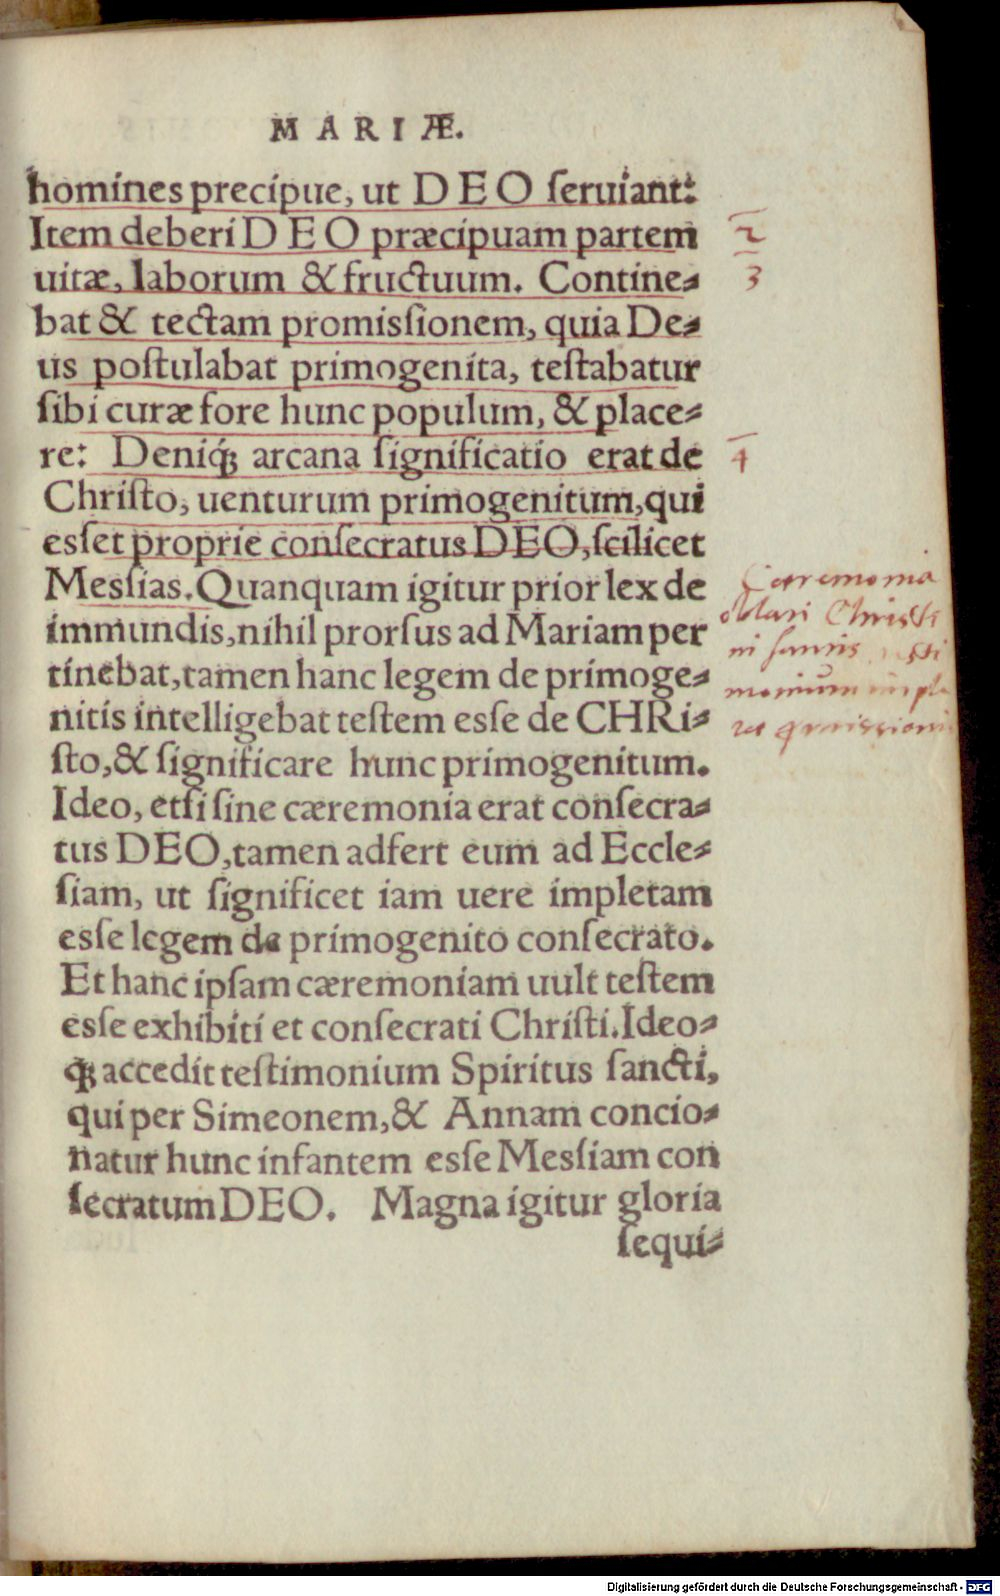 MARIÆ.
homines precipue, ut DEO ſeruiant:
Item deberi DEO præcipuam partem
uitæ, laborum & fructuum. Contine⸗
bat & tectam promiſsionem, quia De⸗
us poſtulabat primogenita, teſtabatur
ſibi curæ fore hunc populum, & place⸗
re: Deniq́; arcana ſignificatio erat de
Chriſto, uenturum primogenitum, qui
eſſet proprie conſecratus DEO, ſcilicet
Meſsias. Quanquam igitur prior lex de
immundis, nihil prorſus ad Mariam per
tinebat, tamen hanc legem de primoge⸗
nitis intelligebat teſtem eſſe de CHRi⸗
ſto, & ſignificare hunc primogenitum.
Ideo, etſi ſine cæremonia erat conſecra⸗
tus DEO, tamen adfert eum ad Eccle⸗
ſiam, ut ſignificet iam uere impletam
eſſe legem de primogenito conſecrato.
Et hanc ipſam cæremoniam uult teſtem
eſſe exhibiti et conſecrati Chriſti. Ideo⸗
q́; accedit teſtimonium Spiritus ſancti,
qui per Simeonem, & Annam concio⸗
natur hunc infantem eſſe Meſsiam con
ſecratum DEO. Magna igitur gloria
ſequi⸗
2
3
4
Cæremonia
oblati Chriſti
Digitalisierung gefördert durch die Deutsche Forschungsgemeinschaft - DFG